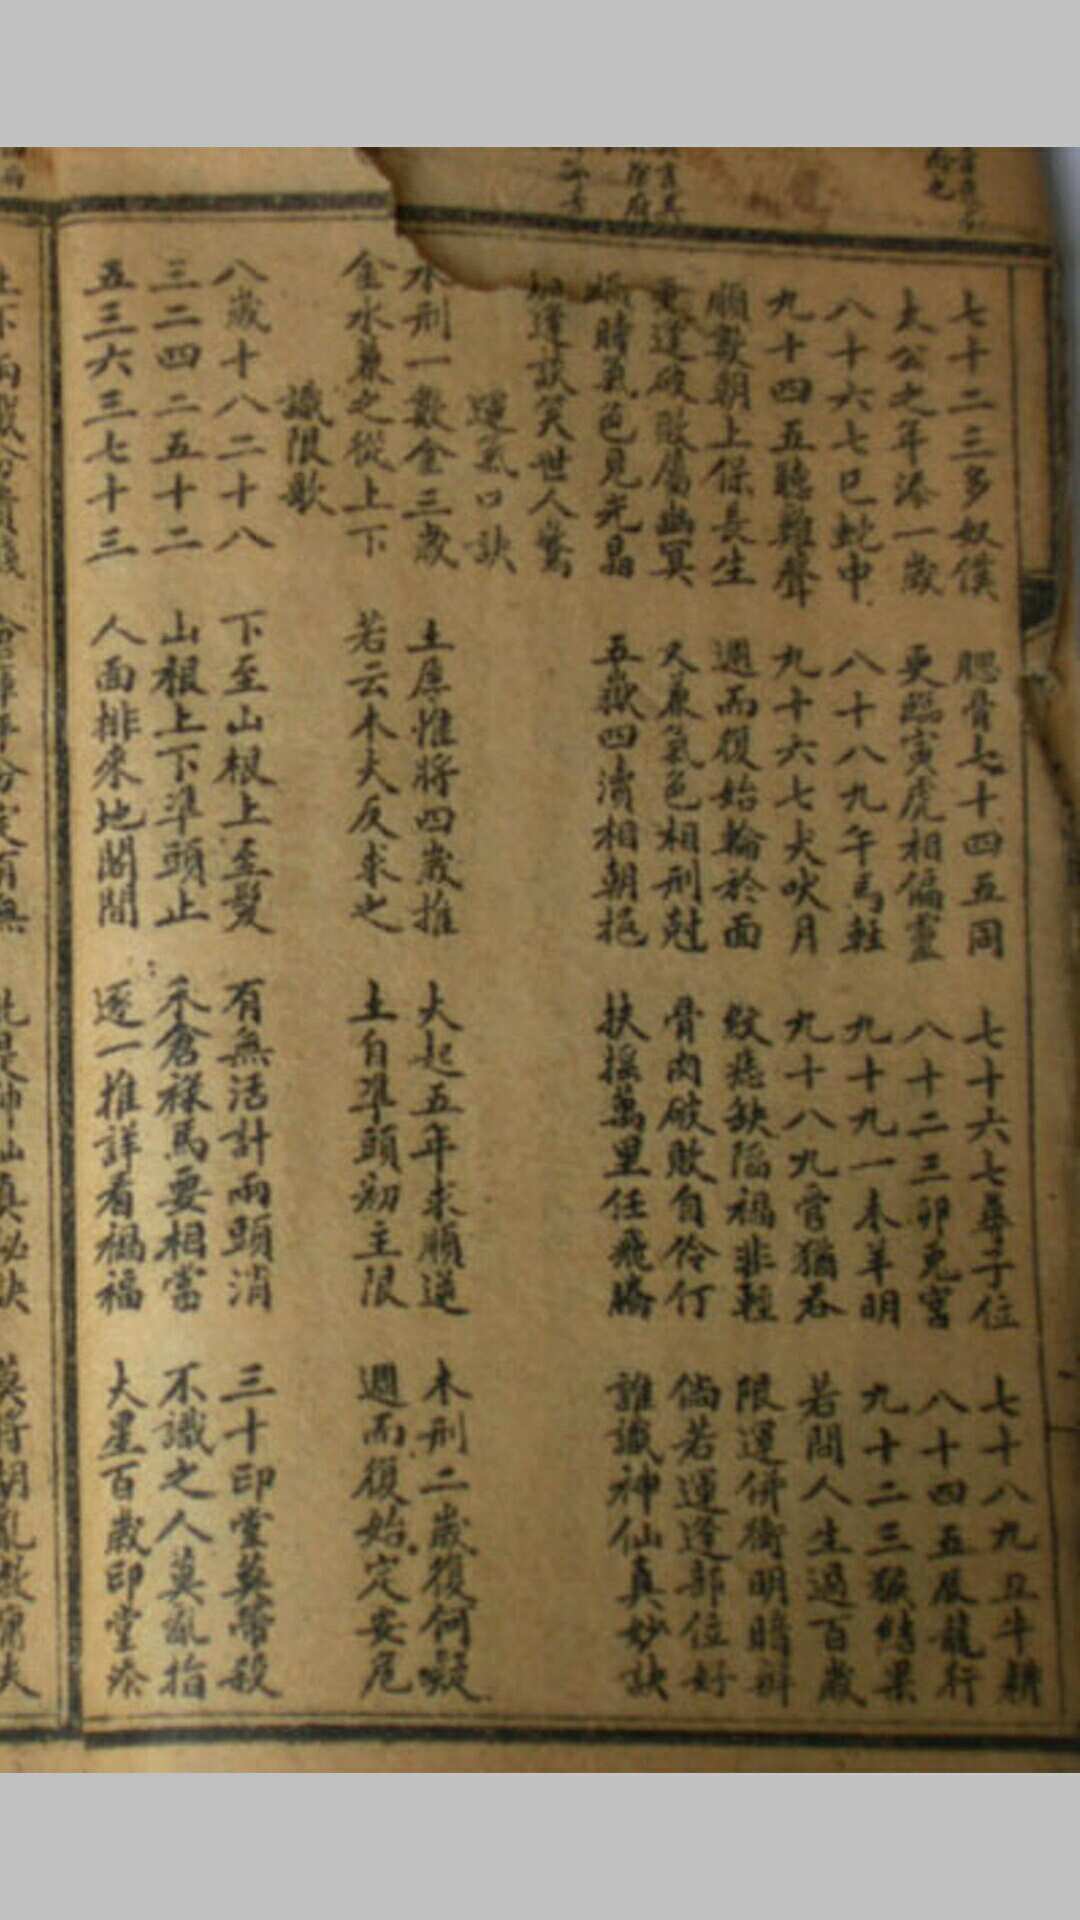 七十二三多奴僕 腮骨七十四五同 七十六七尋子位 七十八九丑牛耕
太公之年添一歲 更臨寅虎相偏靈 八十二三卯兔宮 八十四五辰龍行
八十六七巳蛇中 八十八九午馬輕 九十九一未羊明 九十二三猴結果
九十四五聽雞聲 九十六七犬吠月 九十八九猪吞 若問人生過百歲
順數朝上保長生 週而復始輪於面 紋痣缺陷禍非輕 限運併衝明暗辨
逢破敗屬幽冥 又兼氣色相刑尅 骨肉破敗自伶仃 倘若運逢部位好
時氣色見光晶 五嶽四瀆相朝挹 扶搖萬里任飛騰 誰識神仙真妙訣
逢談笑世人驚
運氣口訣
水刑一數金三歲 土厚惟將四歲推 火起五年求順逆 木刑二歲復何疑
金水兼之從上下 若云木火反求之 土自準頭初主限 週而復始定安危
識限歌
八歲十八二十八 下至山根上至髮 有無活計兩頭消 三十印堂莫帶殺
三二四二五十二 山根上下準頭止 禾倉祿馬要相當 不識之人莫亂指
五三六三七十三 人面排來地閣間 逐一推詳看禍福 火星百歲印堂添